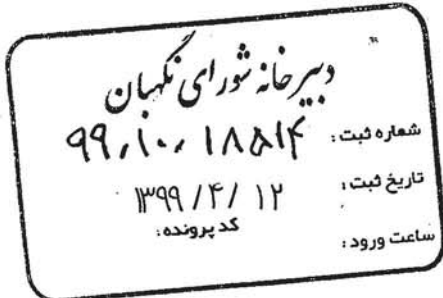 دبیرخانه شورای نگهبان
شماره ثبت: ۹۹/۱۰/۱۸۵۱۴
تاریخ ثبت: ۱۳۹۹/۴/۱۲
کد پرونده:
ساعت ورود: